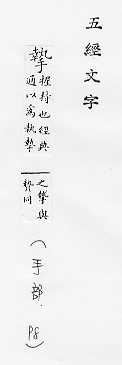 五經文字
摯
握持也經典
通以爲執摯
之摯與
贄同
(手部. P8)